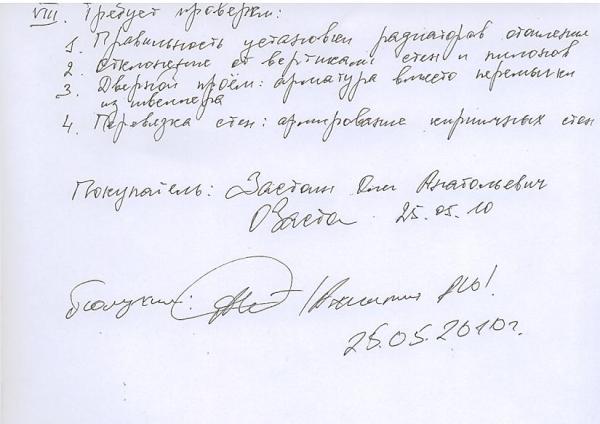 VIII. Требует проверки:
1. Правильность установки радиаторов отопления
2. Отклонение от вертиками стен и пилонов
3. Дверной проём: арматура вместо перемычки
из швеллера
4. Перевязка стен: армирование кирпичных стен
Покупатель: Анатольевич
25.05.10
25.05.2010г.